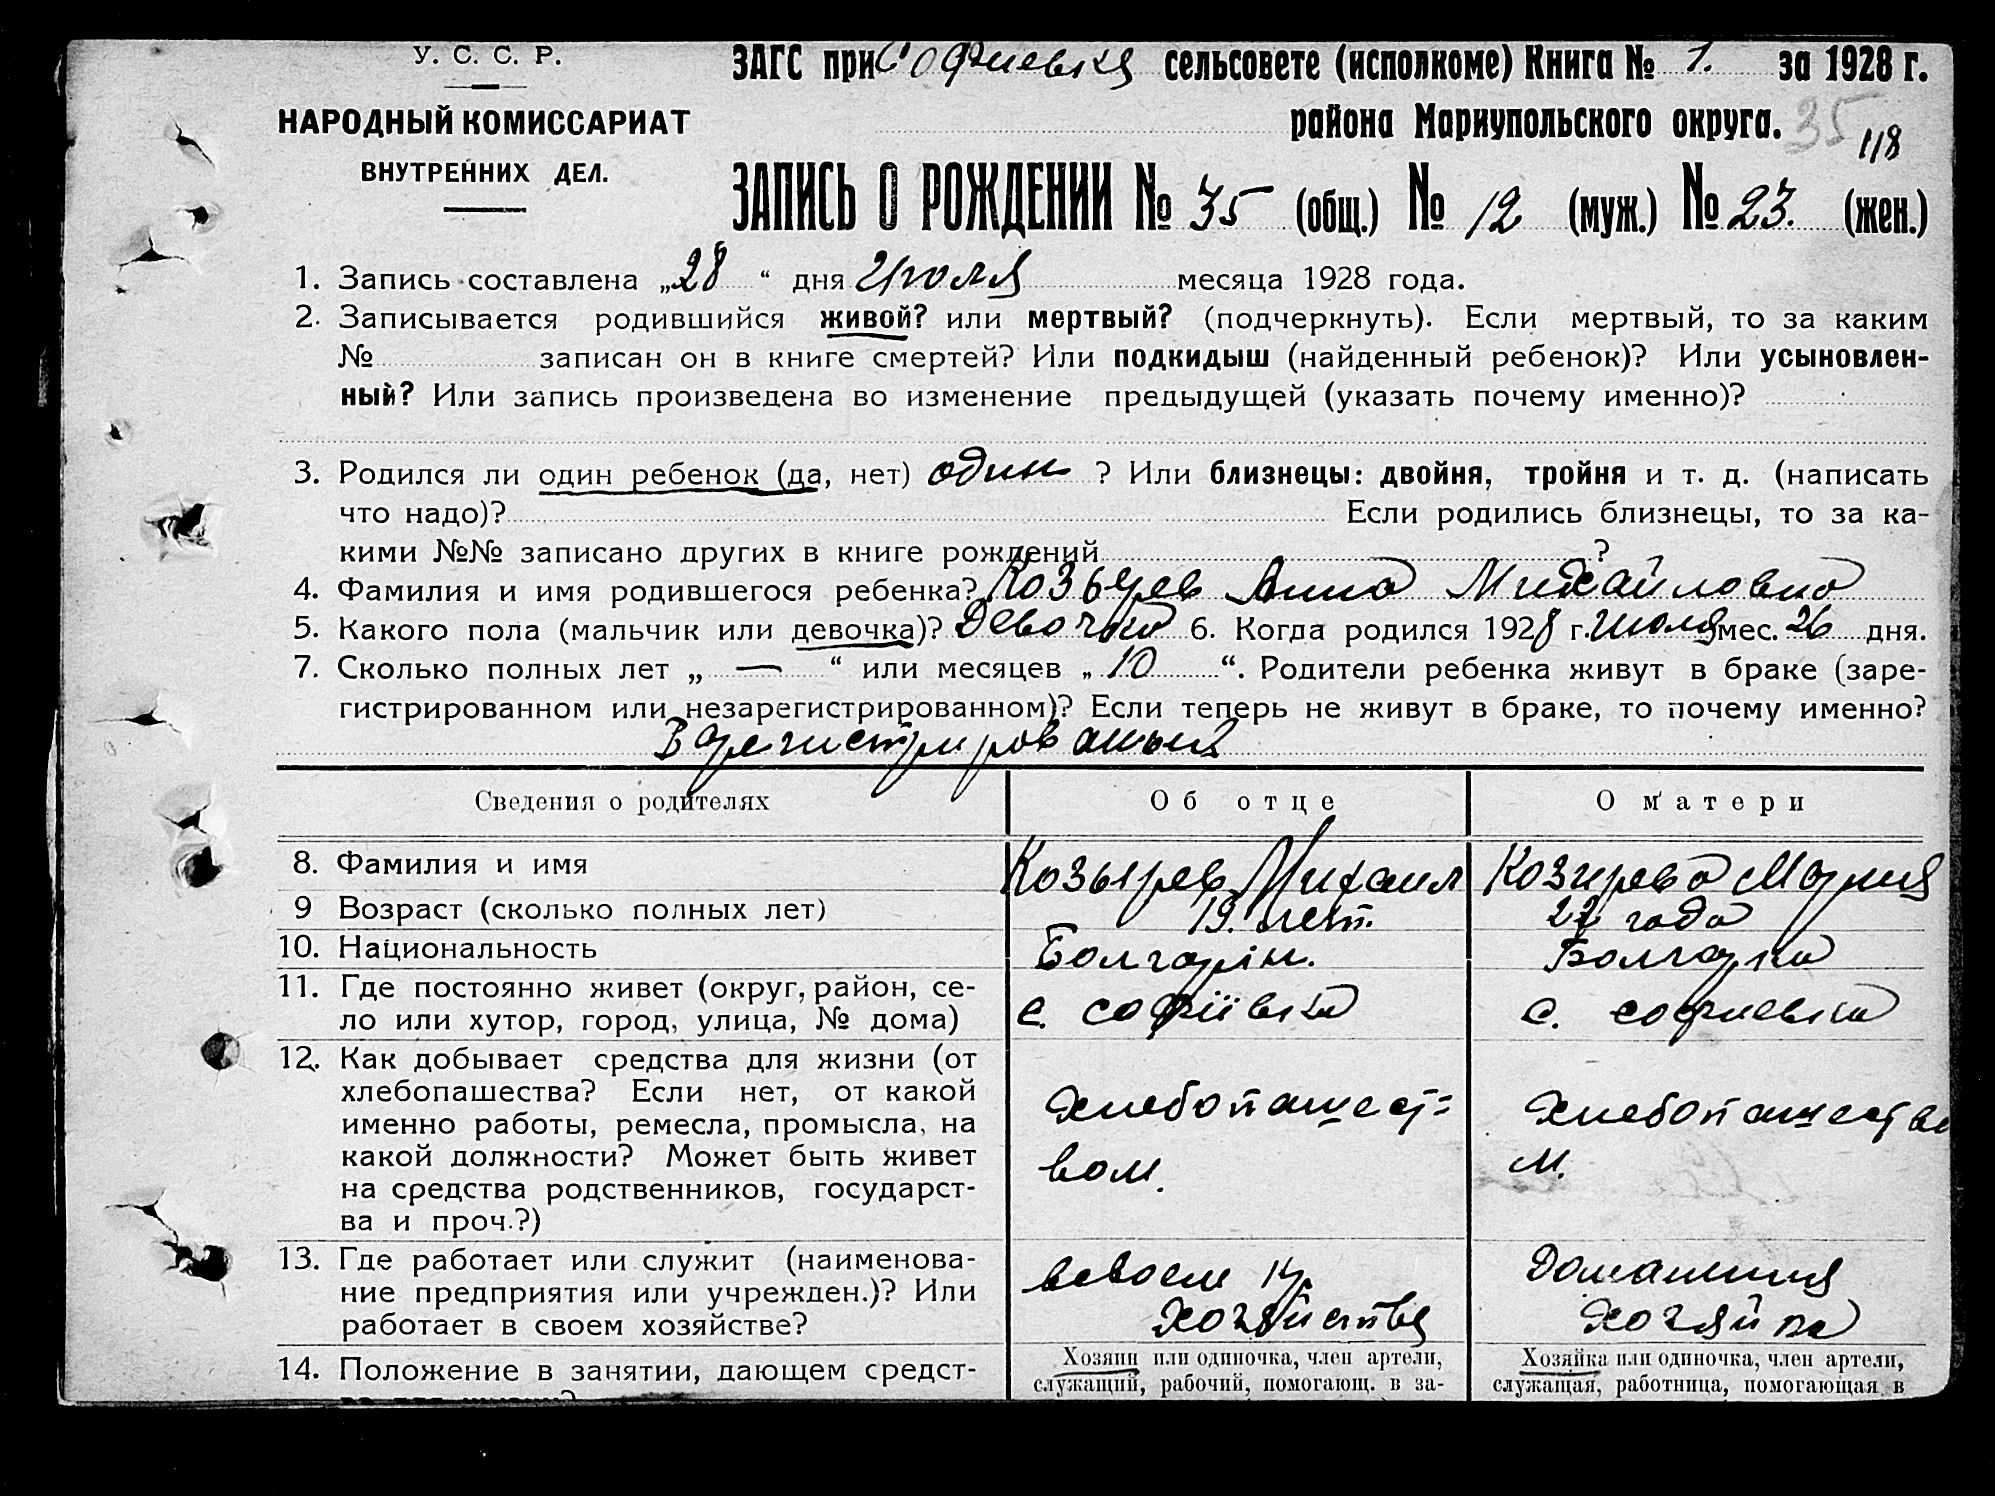 У. С. С. Р.
НАРОДНЫЙ КОМИССАРИАТ
ВНУТРЕННИХ ДЕЛ.
ЗАГС при Софиевка сельсовете (исполкоме) Книга № 1. за 1928 г.
района Мариупольского округа. 35
118
ЗАПИСЬ О РОЖДЕНИИ № 35 (общ.) № 12 (муж.) № 23. (жен.)
1. Запись составлена „28 “ дня Июля месяца 1928 года.
2. Записывается родившийся живой? или мертвый? (подчеркнуть). Если мертвый, то за каким
№ записан он в книге смертей? Или подкидыш (найденный ребенок)? Или усыновлен-
ный? Или запись произведена во изменение предыдущей (указать почему именно)?
3. Родился ли один ребенок (да, нет) один ? Или близнецы: двойня, тройня и т. д. (написать
что надо)? Если родились близнецы, то за ка-
кими №№ записано других в книге рождений ?
4. Фамилия и имя родившегося ребенка? Козырев Анна Михайловна
5. Какого пола (мальчик или девочка)? Девочка 6. Когда родился 1928 г. июля мес. 26 дня.
7. Сколько полных лет „ — “ или месяцев „ 10 “. Родители ребенка живут в браке (заре-
гистрированном или незарегистрированном)? Если теперь не живут в браке, то почему именно?
Сведения о родителях Об отце О матери
8. Фамилия и имя Козырев Михаил Козирева Мария
9 Возраст (сколько полных лет) 19. лет. 22 года
10. Национальность Болгарін. Болгарка
11. Где постоянно живет (округ, район, се-
ло или хутор, город, улица, № дома) с. софіївка с. софиевка
12. Как добывает средства для жизни (от
хлебопашества? Если нет, от какой
именно работы, ремесла, промысла, на
какой должности? Может быть живет
на средства родственников, государст-
ва и проч.?)
хлебопашест=
вом.
хлебопашество
м.
13. Где работает или служит (наименова-
ние предприятия или учрежден.)? Или
работает в своем хозяйстве?
всвоем
хозяйства
Домашния
хозяйка
14. Положение в занятии, дающем средст-
Хозяин или одиночка, член артели,
служащий, рабочий, помогающ. в за-
Хозяйка или одиночка, член артели,
служащая, работница, помогающая в